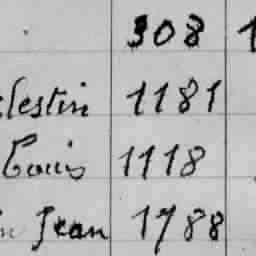 308 1
lestin 1181
Louis 1118
in Jean 1788